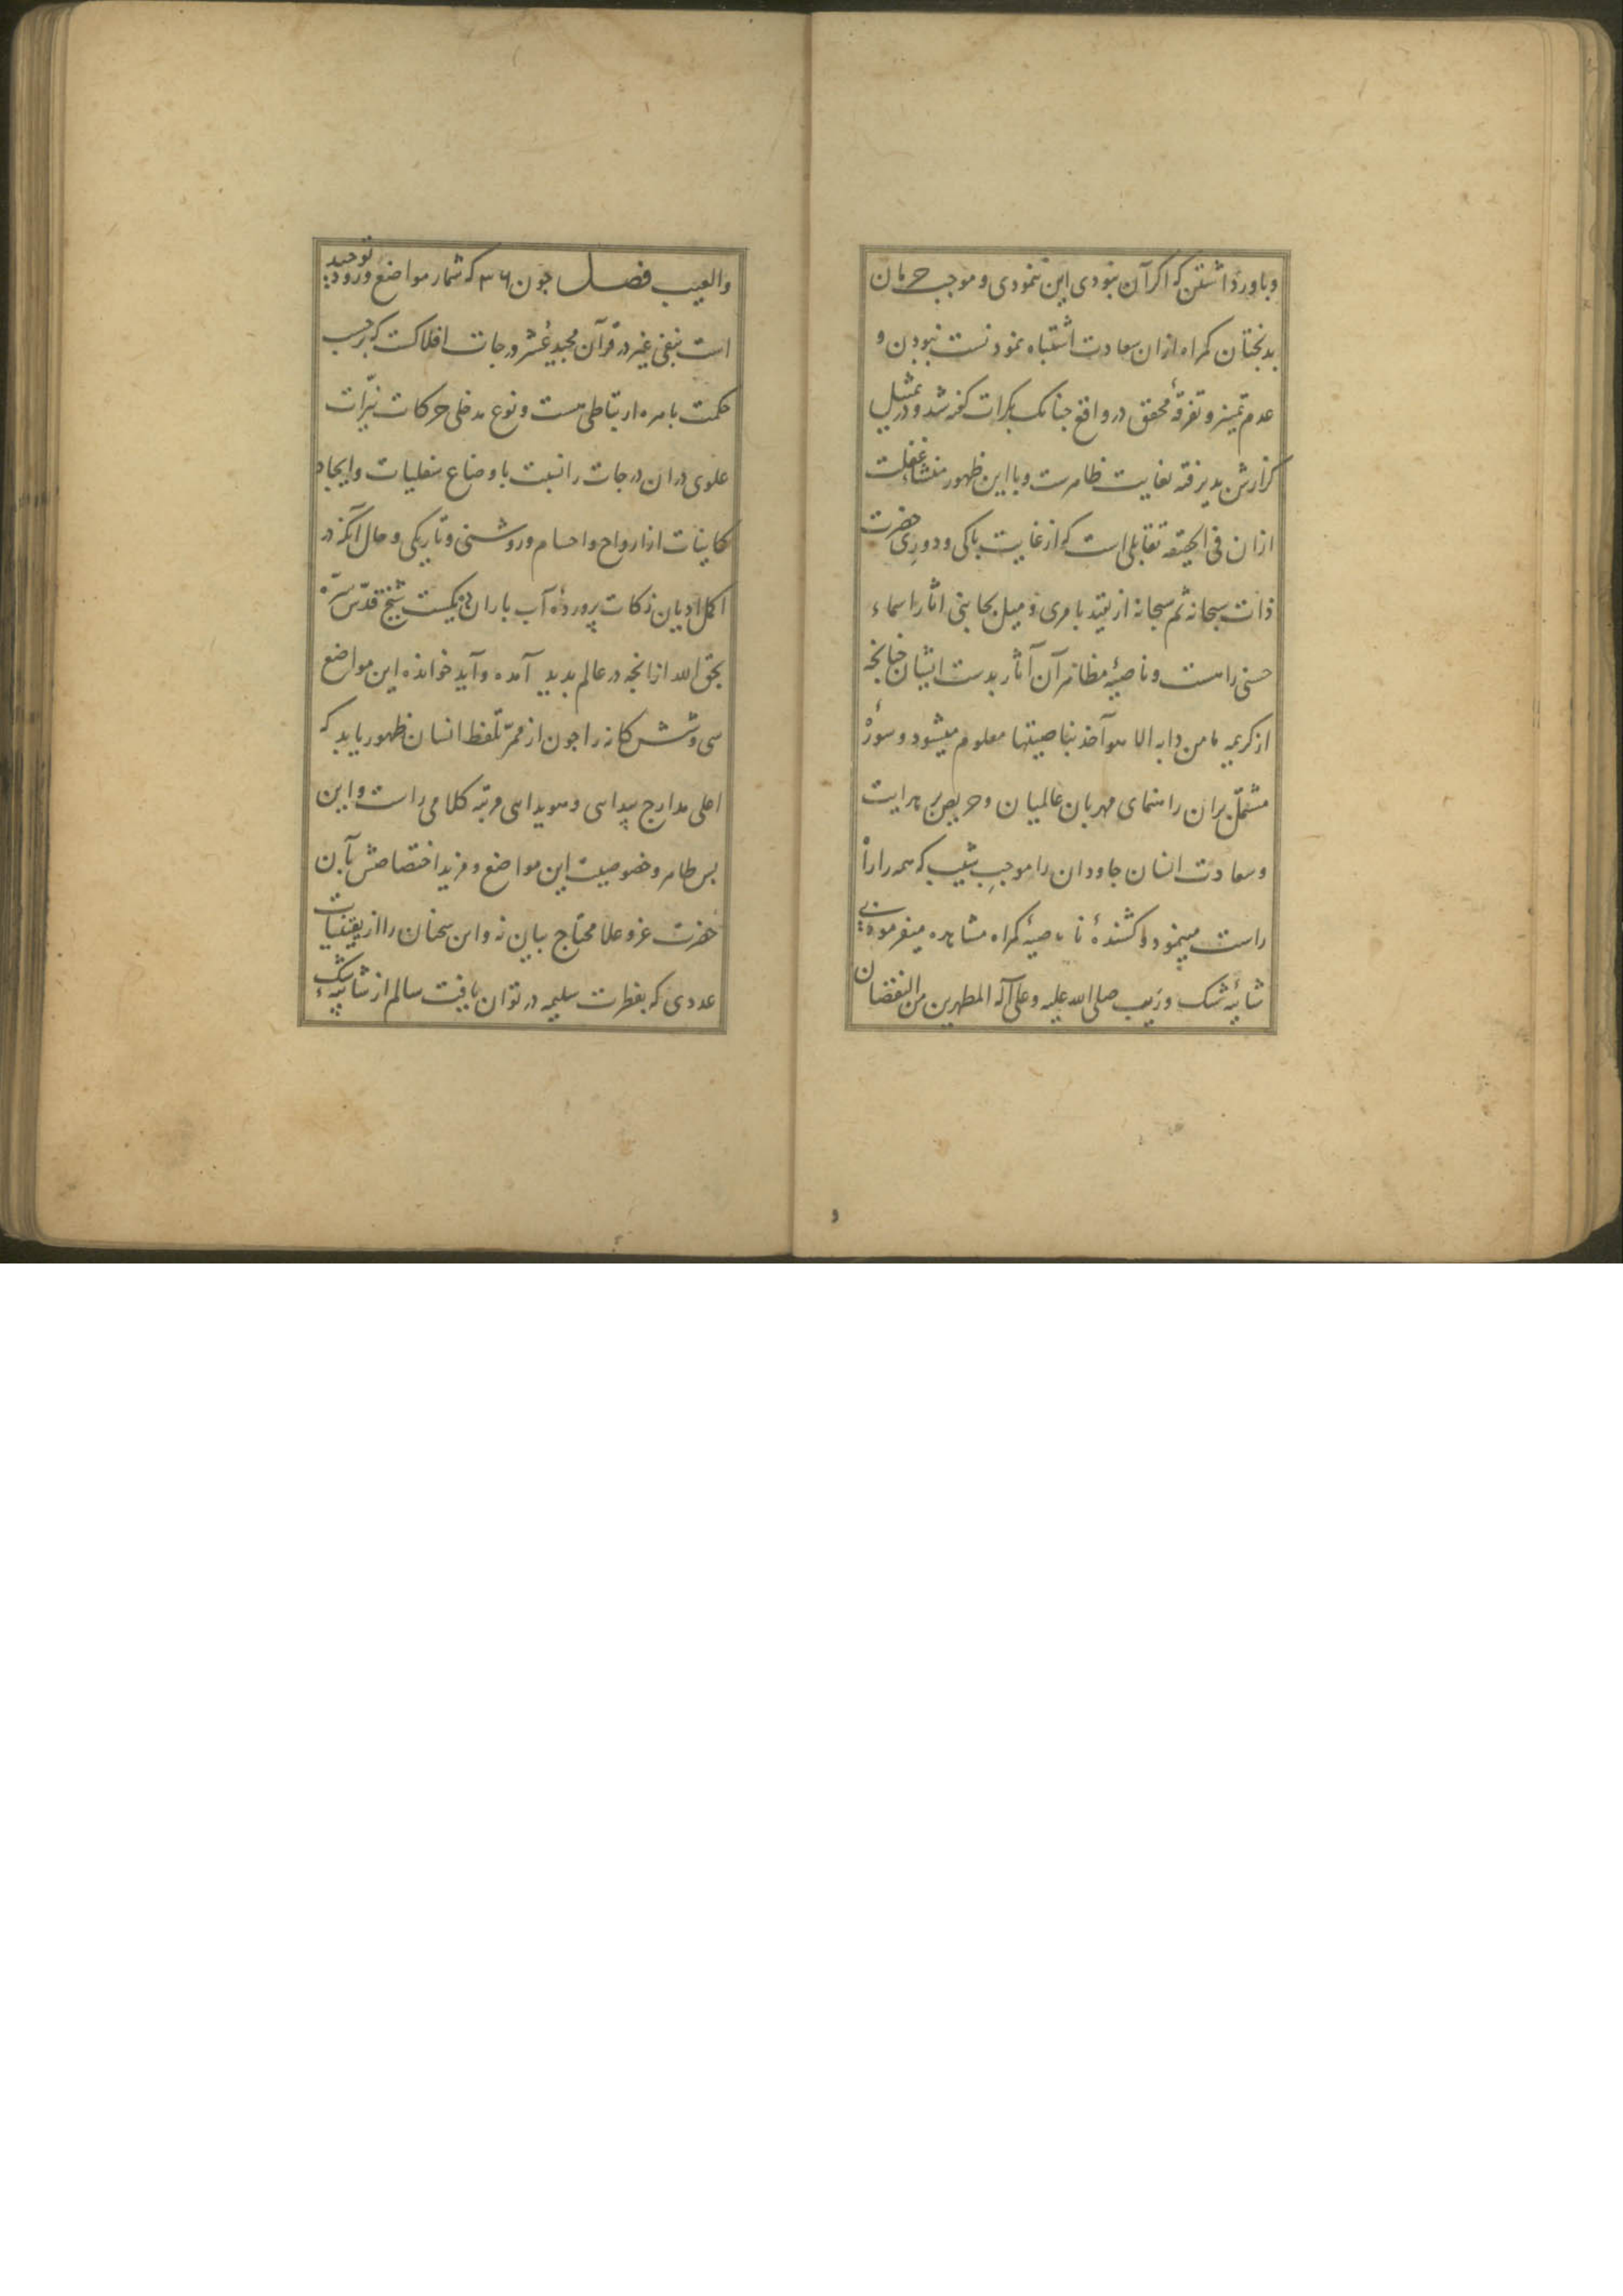 و باور داشتن که اگر آن نبودی این ننمودی و موجب حرمان
بدبختان کمراه ازان سعادت اشتباه نمودنست نبودن و
عدم تمیز و تفرقهٔ محقق در واقع جنانک بکرات کفته شد و در تمثیل
کزارش بذیرفته بغایت ظاهرست و با این ظهور منشاء غفلت
ازان فی الحقیقه تقابلی است که از غایت باکی و دوری حضرت
ذات سبحانه ثم سبحانه از تقید بامری و میل بجانبی اثار اسماء
حسنی راست و ناصیهٔ مظاهر آن آثار بدست ایشان جنانجه
از کریمه ما من دابه الا هو آخذ بناصیتها معلوم میشود و سورهٔ
مشتمل بران راهنمای مهربان عالمیان و حریص بر هدایت
و سعادت انسان جاودان را موجب شیب که همه را راه
راست مینمود و کشندهٔ ناصیهٔ کمراه مشاهده میفرمود بی
شائبه شک و ریب صلی الله علیه و علی آله المطهرین من النقصان
والعیب فصل جون ۳۶ که شمار مواضع ورود توحید
است بنفی غیر در قرآن مجید عُشر درجات افلاکست که برحسب
حکمت باهره ارتباطی هست و نوع مدخلی حرکات نیّرات
علوی دران درجات را نسبت باوضاع سفلیات و ایجاد
کاینات از ارواح و اجسام و روشنی و تاریکی و حال آنکه در
اکمل ادیان زکات پروردهٔ آب باران ده یکست شیخ قدّس سرّه
بحق الله ازانجه در عالم بدید آمده و آید خوانده این مواضع
سی و شش کانه را جون از ممرّ تلفظ انسان ظهور یابد که
اعلی مدارج پیدایی و هویدایی مرتبه کلامی راست و این
بس ظاهر و خصوصیت این مواضع و مزید اختصاصش بآن
حضرت عز و علا محتاج بیان نه و این سخنان را از یقینیات
عددی که بفطرت سلیمه در توان یافت سالم از شائبهٔ شک